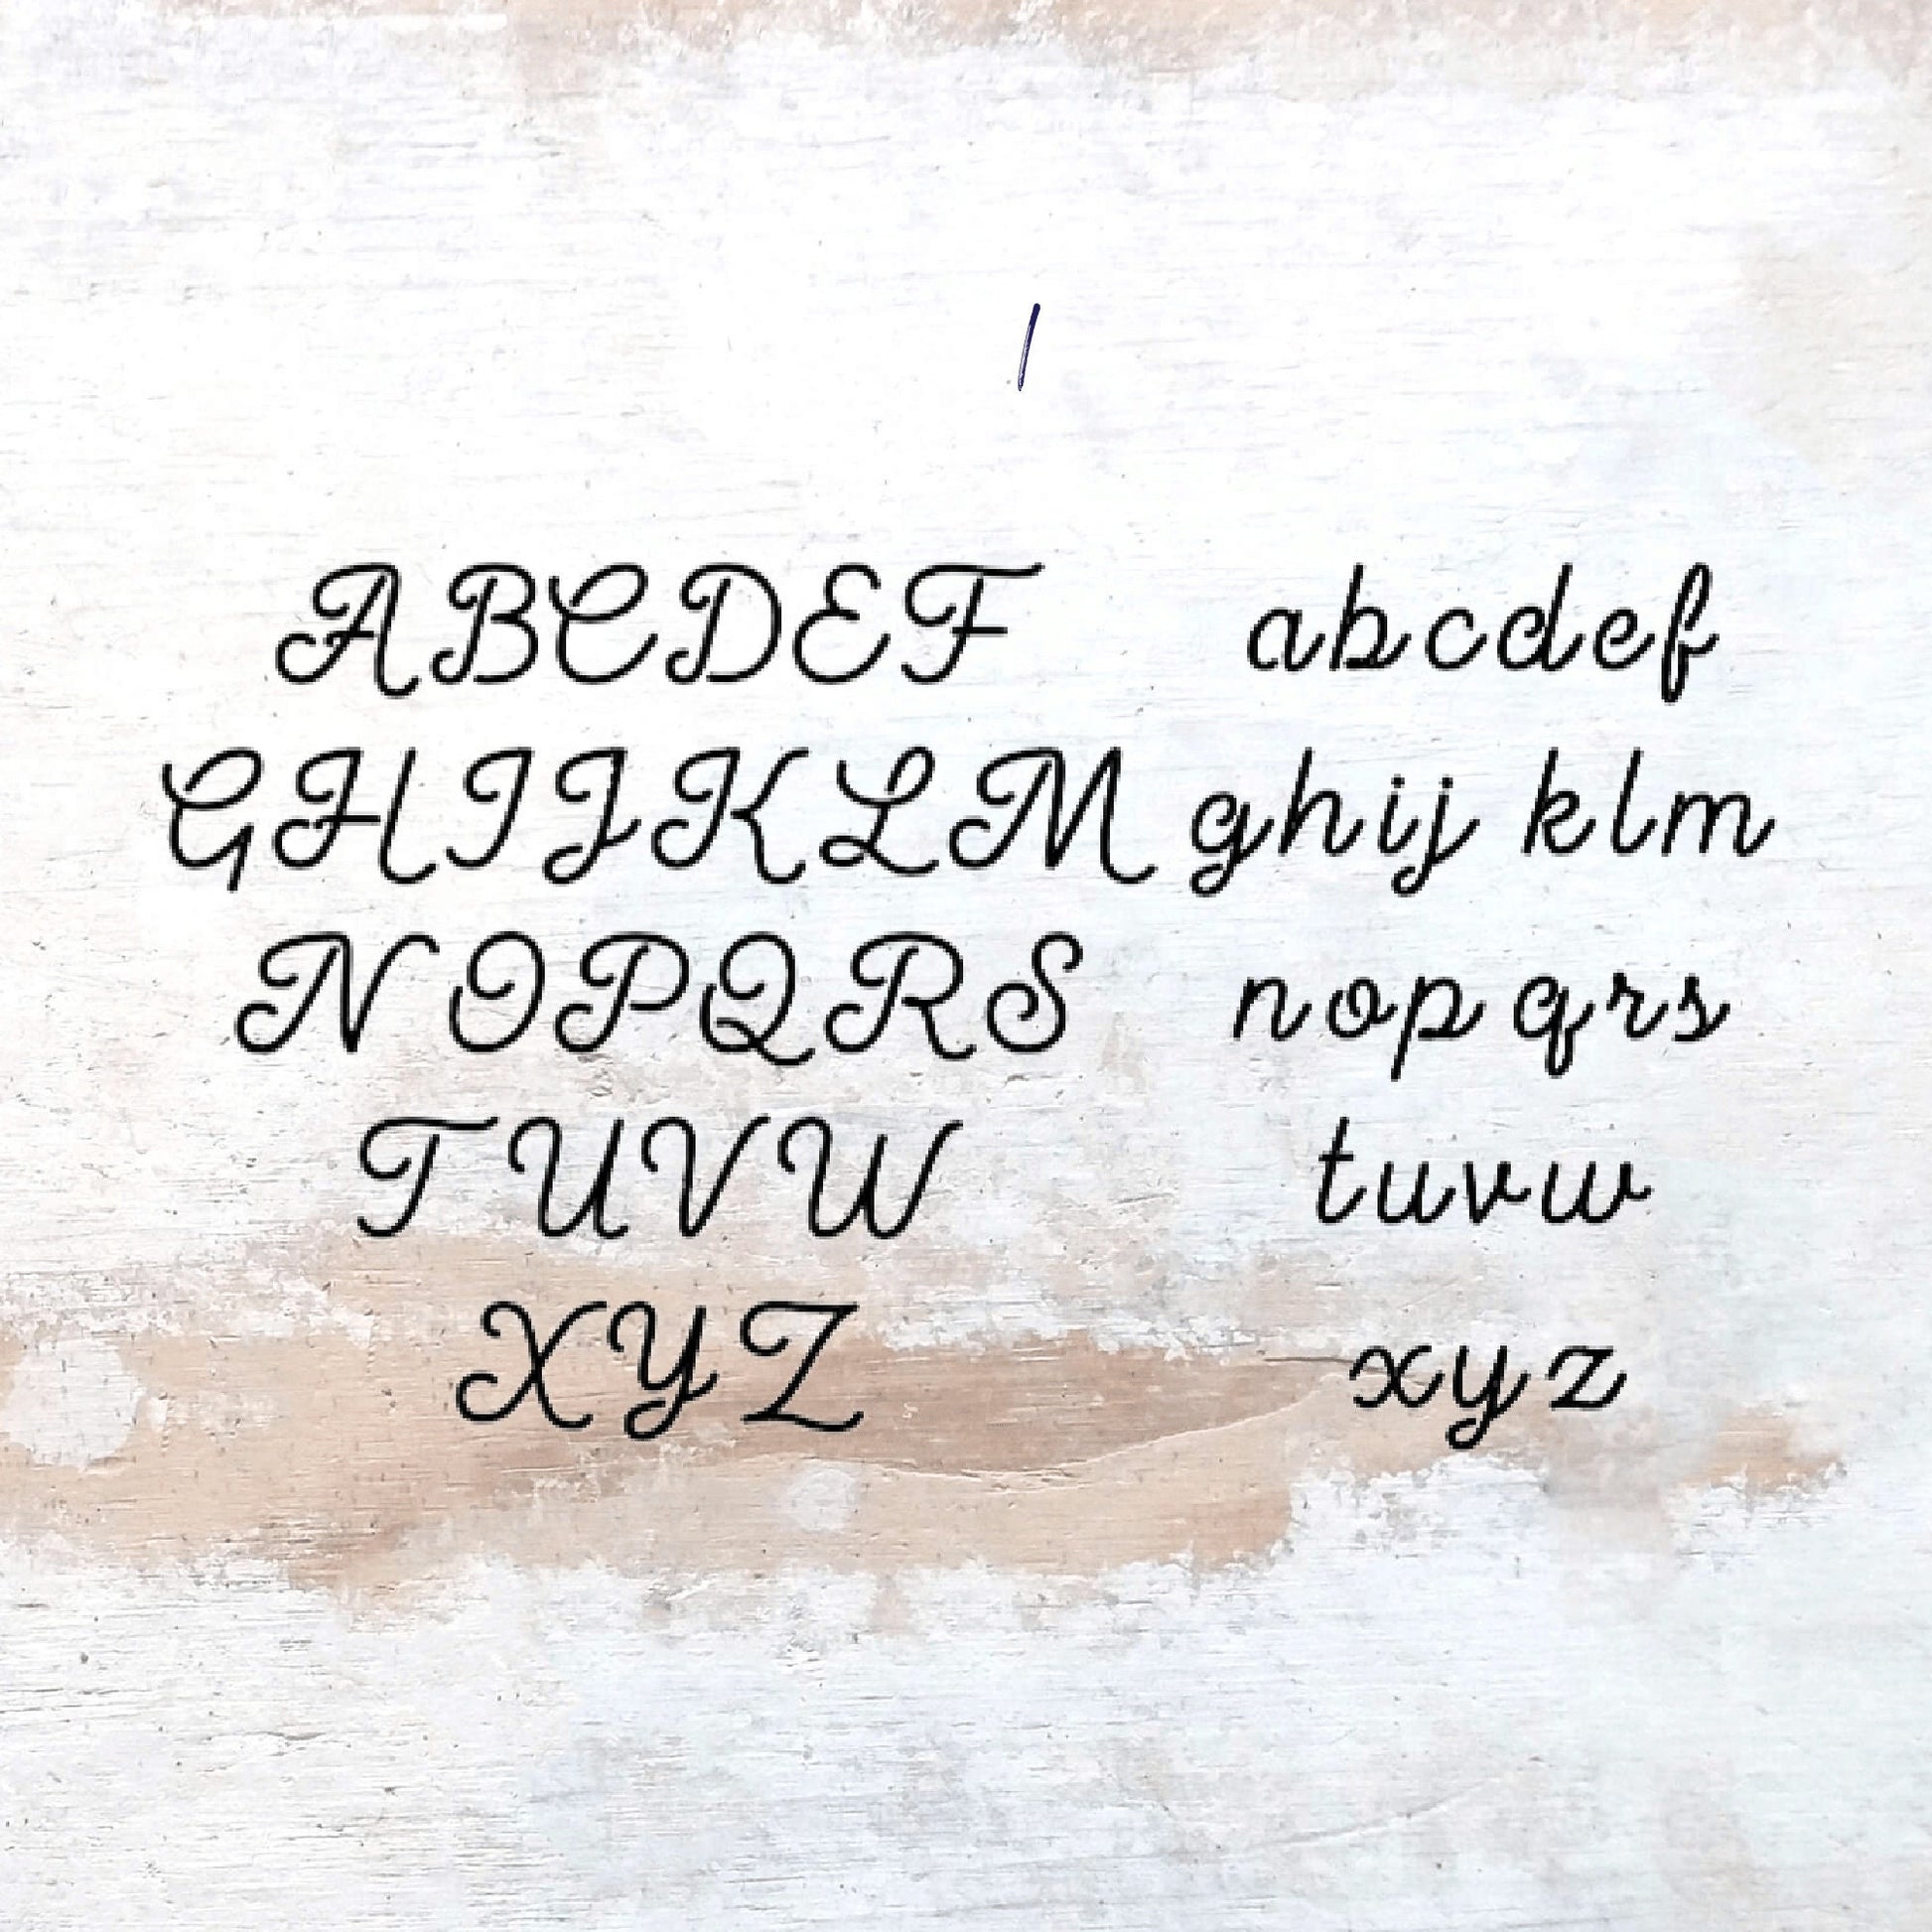 ABCDEF abcdef
GHIJKLM ghij klm
NOPQRS nop qrs
TUVW tuvw
XYZ xyz